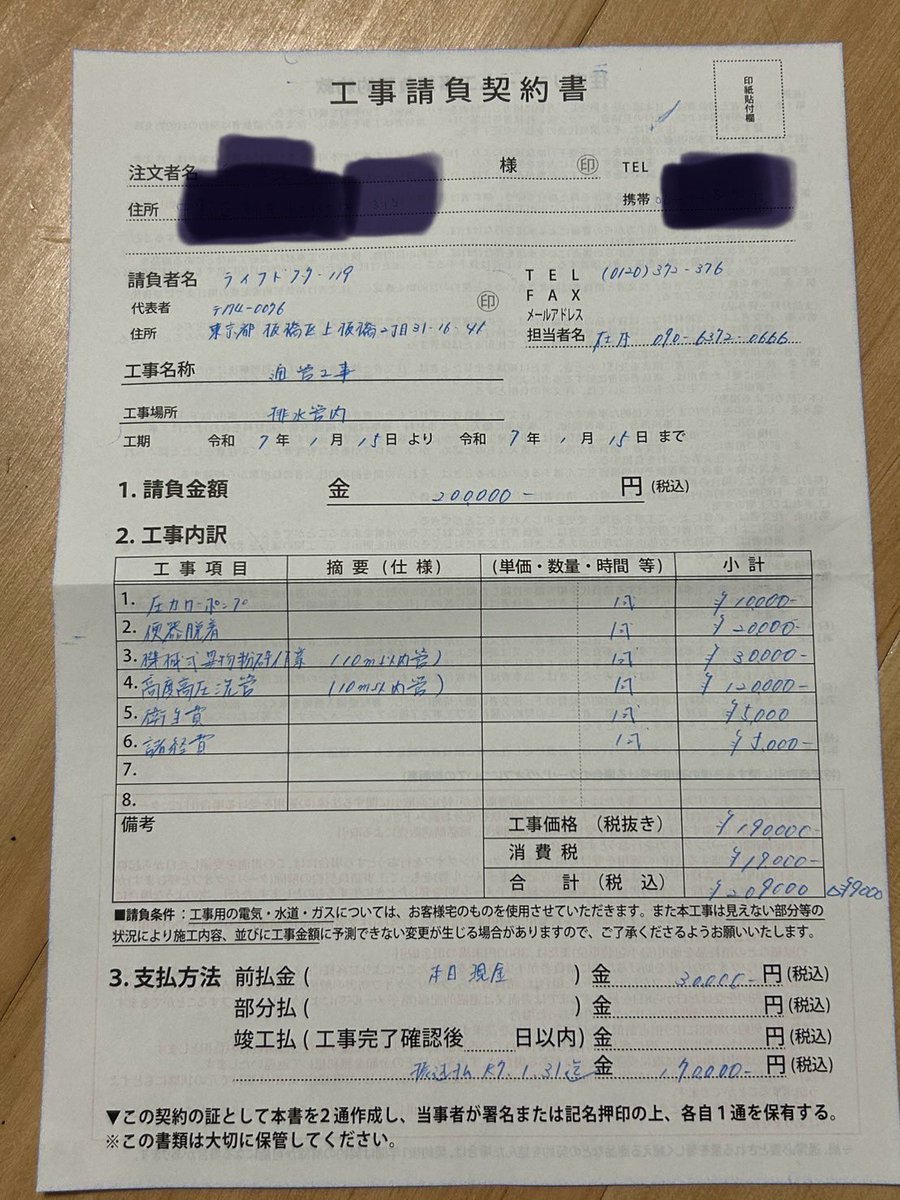 工事請負契約書
印紙貼付欄
注文者名 様 ㊞ TEL
住所 携帯
請負者名 ライフドクター119 TEL (0120) 372-376
代表者 〒174-0076 ㊞ FAX
メールアドレス
住所 東京都板橋区上板橋2丁目31-16-4F 担当者名 090-6372-0666
工事名称 通管工事
工事場所 排水管内
工期 令和 7年 1月 15日より 令和 7年 1月 15日まで
1. 請負金額 金 200,000- 円 (税込)
2. 工事内訳
工事項目 摘要(仕様) (単価・数量・時間 等) 小計
1. 圧力ローポンプ 1式 ¥10,000-
2. 便器脱着 1式 ¥20000-
3. 機械式異物粉砕作業 (10m以内管) 1式 ¥30000-
4. 高度高圧洗管 (10m以内管) 1式 ¥120,000-
5. 衛生費 1式 ¥5,000
6. 諸経費 1式 ¥5,000-
7.
8.
備考 工事価格 (税抜き) ¥190000-
消費税 ¥19,000-
合計 (税込) ¥209000 △¥9000
■請負条件:工事用の電気・水道・ガスについては、お客様宅のものを使用させていただきます。また本工事は見えない部分等の
状況により施工内容、並びに工事金額に予測できない変更が生じる場合がありますので、ご了承くださるようお願いいたします。
3. 支払方法 前払金 ( 本日現金 ) 金 30000- 円 (税込)
部分払 ( ) 金 円 (税込)
竣工払 ( 工事完了確認後 日以内 ) 金 円 (税込)
振込払 R7.1.31迄 金 170000- 円 (税込)
▼この契約の証として本書を2通作成し、当事者が署名または記名押印の上、各自1通を保有する。
※この書類は大切に保管してください。